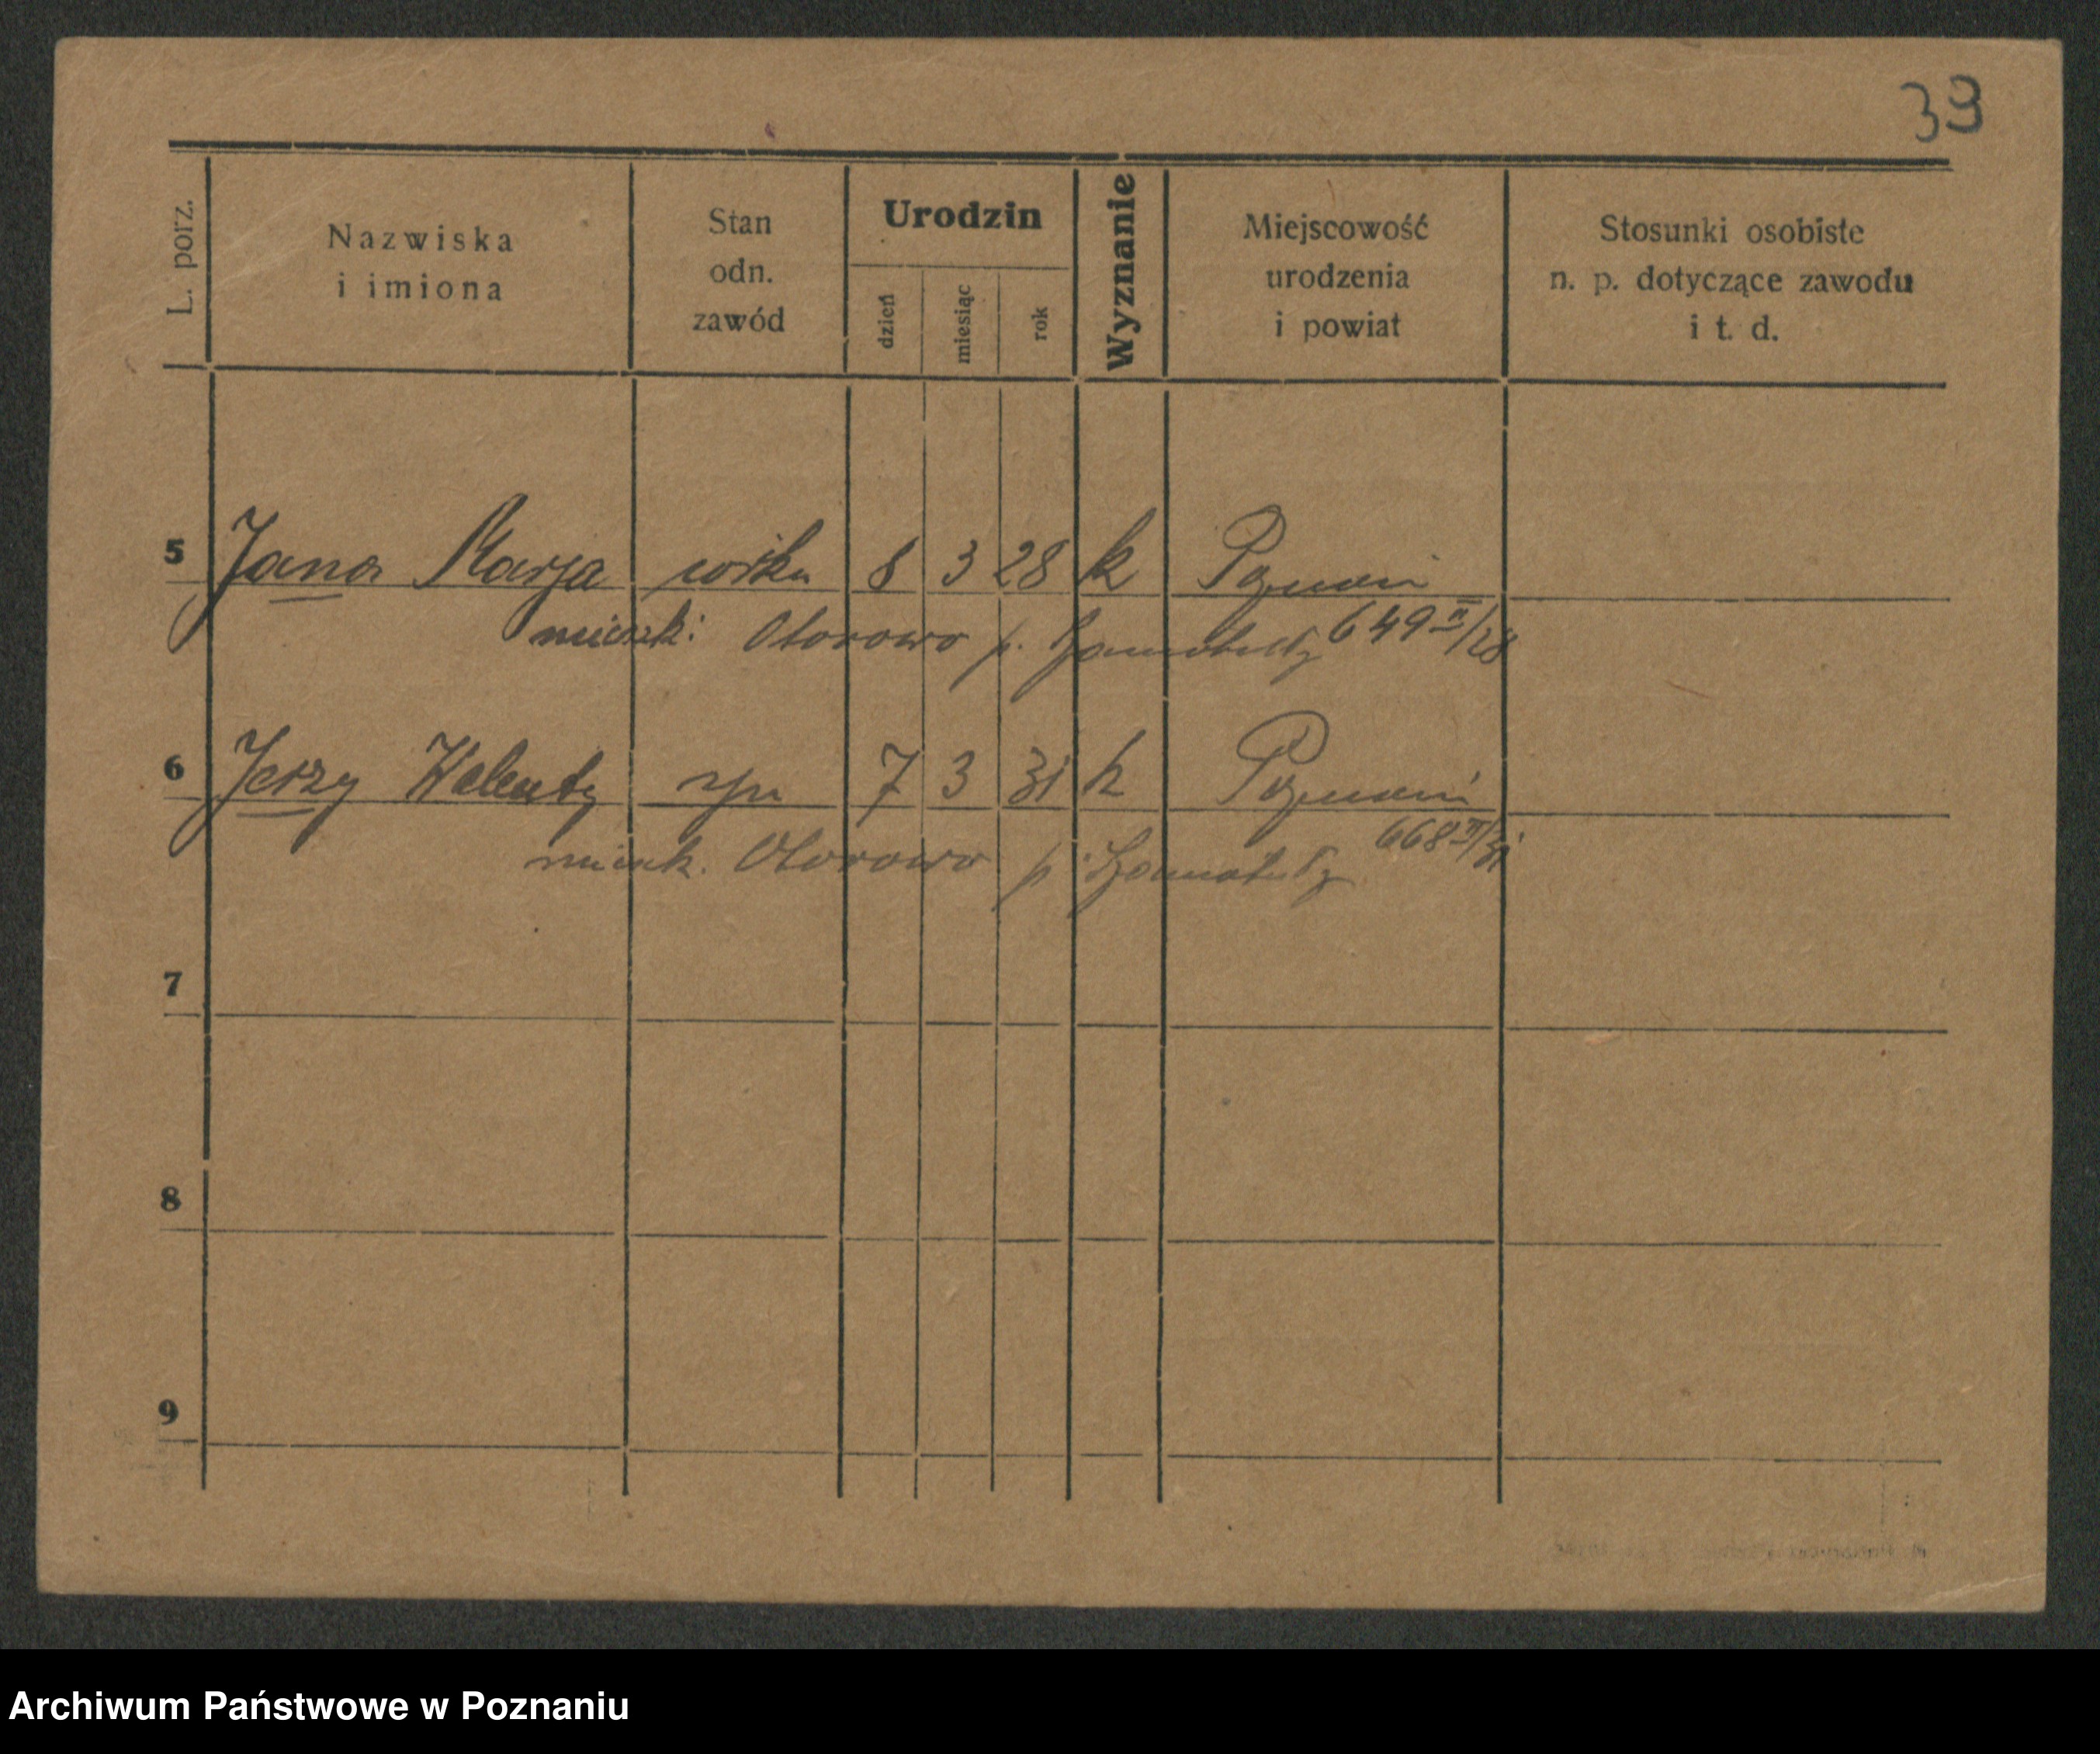 39
L. porz.
Nazwiska
i imiona
Stan
odn.
zawód
Urodzin
dzień
miesiąc
rok
Wyznanie
Miejscowość
urodzenia
i powiat
Stosunki osobiste
n. p. dotyczące zawodu
i t. d.
5 Jana Marja córka 8 3 28 k Poznań
mieszk: Otorowo p. Szamotuły 649 II/28
6 Jerzy Walenty syn 7 3 31 k Poznań
mieszk. Otorowo p. Szamotuły 668 II/31
7
8
9
Archiwum Państwowe w Poznaniu